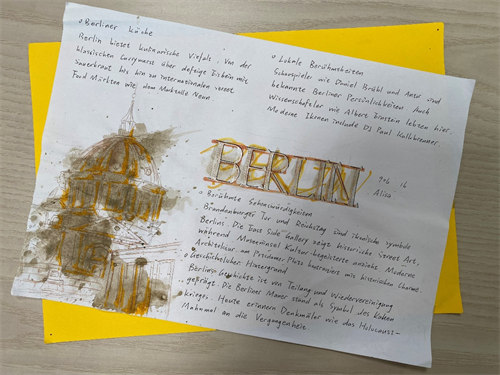 Berliner Küche
Berlin bietet kulinarische Vielfalt. Von der
klassischen Currywurst über deftige Eisbein mit
Sauerkraut bis hin zu internationalen Street
Food Märkten wie dem Markthalle Neun
Lokale Berühmtheiten
Schauspieler wie Daniel Brühl und Autor sind
bekannte Berliner Persönlichkeiten Auch
Wissenschaftler wie Albert Einstein lebten hier.
Moderne Ikonen include DJ Paul Kalkbrenner.
BERLIN
Alisa
Berühmte Sehenswürdigkeiten
Brandenburger Tor und Reichstag sind ikonische Symbole
Berlins. Die East Side Gallery zeigt historische Street Art,
während Museumsinsel Kultur-begeisterte anzieht. Moderne
Architektur am Potsdamer Platz kontrastiert mit historischem Charme.
Geschichtlicher Hintergrund
Berlins Geschichte ist von Teilung und Wiedervereinigung
geprägt. Die Berliner Mauer stand als Symbol des Kalten
Krieges. Heute erinnern Denkmäler wie das Holocaust-
Mahnmal an die Vergangenheit